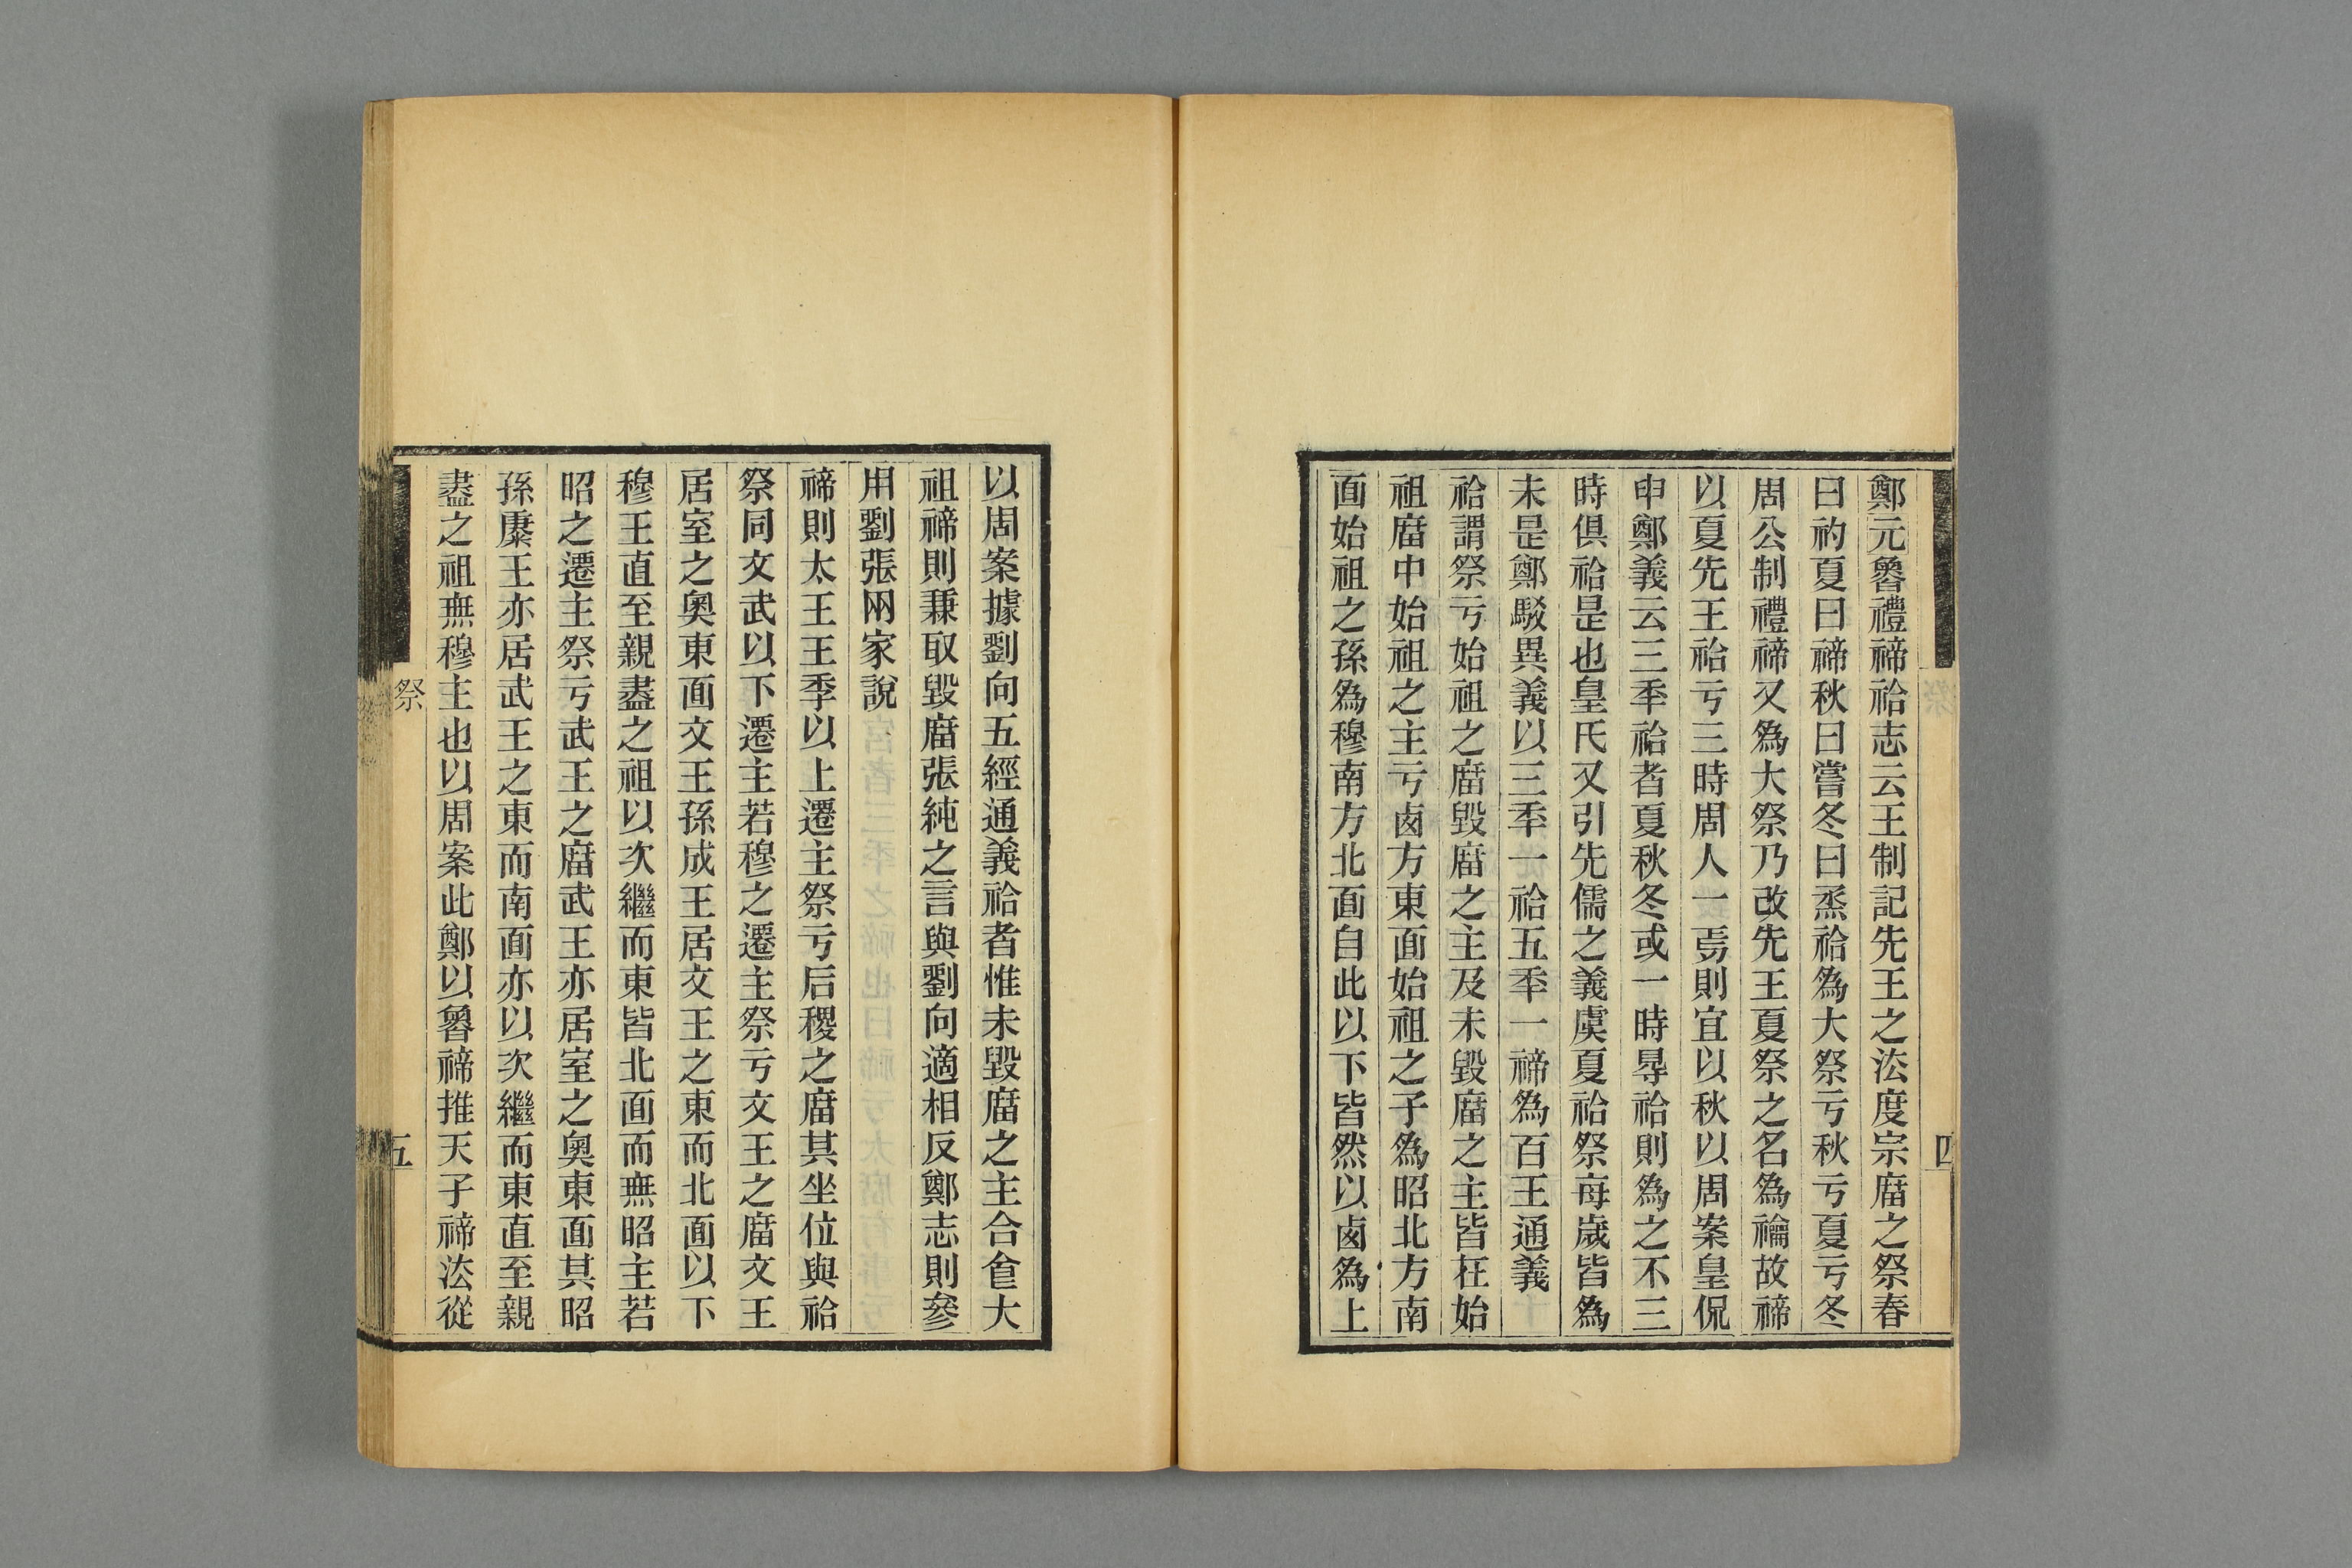 鄭元魯禮禘祫志云王制記先王之法度宗庿之祭春
曰礿夏曰禘秋曰嘗冬曰烝祫爲大祭亏秋亏夏亏冬
周公制禮禘又爲大祭乃改先王夏祭之名爲禴故禘
以夏先王祫亏三時周人一焉則宜以秋以周案皇侃
申鄭義云三秊祫者夏秋冬或一時㝵祫則爲之不三
時俱祫是也皇氏又引先儒之義虞夏祫祭每歲皆爲
未是鄭駁異義以三秊一祫五秊一禘爲百王通義
祫謂祭亏始祖之庿毀庿之主及未毀庿之主皆在始
祖庿中始祖之主亏卤方東面始祖之子爲昭北方南
面始祖之孫爲穆南方北面自此以下皆然以卤爲上
四
以周案據劉向五經通義祫者惟未毀庿之主合食大
祖禘則兼取毀庿張純之言與劉向適相反鄭志則參
用劉張网家說
禘則太王王季以上遷主祭亏后稷之庿其坐位與祫
祭同文武以下遷主若穆之遷主祭亏文王之庿文王
居室之奧東面文王孫成王居文王之東而北面以下
穆王直至親盡之祖以次繼而東皆北面而無昭主若
昭之遷主祭亏武王之庿武王亦居室之奧東面其昭
孫康王亦居武王之東而南面亦以次繼而東直至親
盡之祖無穆主也以周案此鄭以魯禘推天子禘法從
祭
五